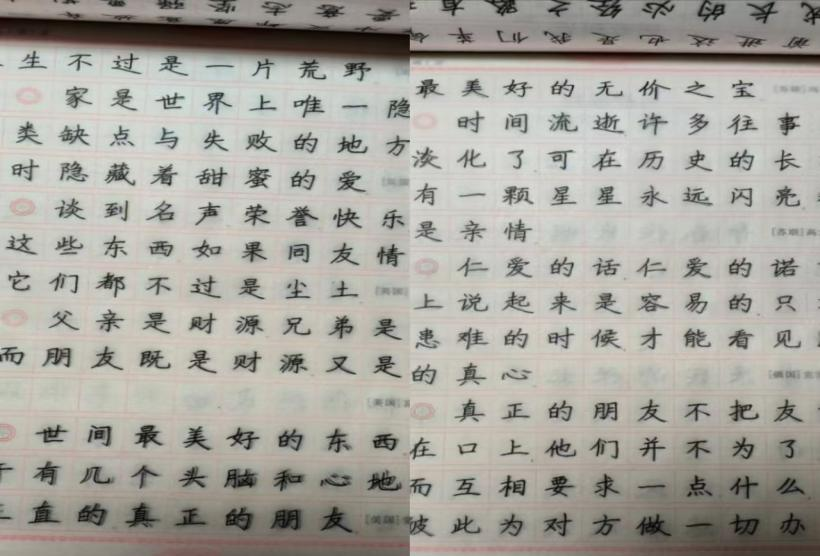 生不过是一片荒野
家是世界上唯一隐
类缺点与失败的地方
时隐藏着甜蜜的爱
谈到名声荣誉快乐
这些东西如果同友情
它们都不过是尘土
[英国]
父亲是财源兄弟是
而朋友既是财源又是
[美国]
世间最美好的东西
有几个头脑和心地
直的真正的朋友
[美国]
成长的必经之路有
前进这也是我们革
最美好的无价之宝
时间流逝许多往事
淡化了可在历史的长
有一颗星星永远闪亮
是亲情
[苏联]高
仁爱的话仁爱的诺
上说起来是容易的只
患难的时候才能看见
的真心
[俄国]
真正的朋友不把友
在口上他们并不为了
而互相要求一点什么
彼此为对方做一切办